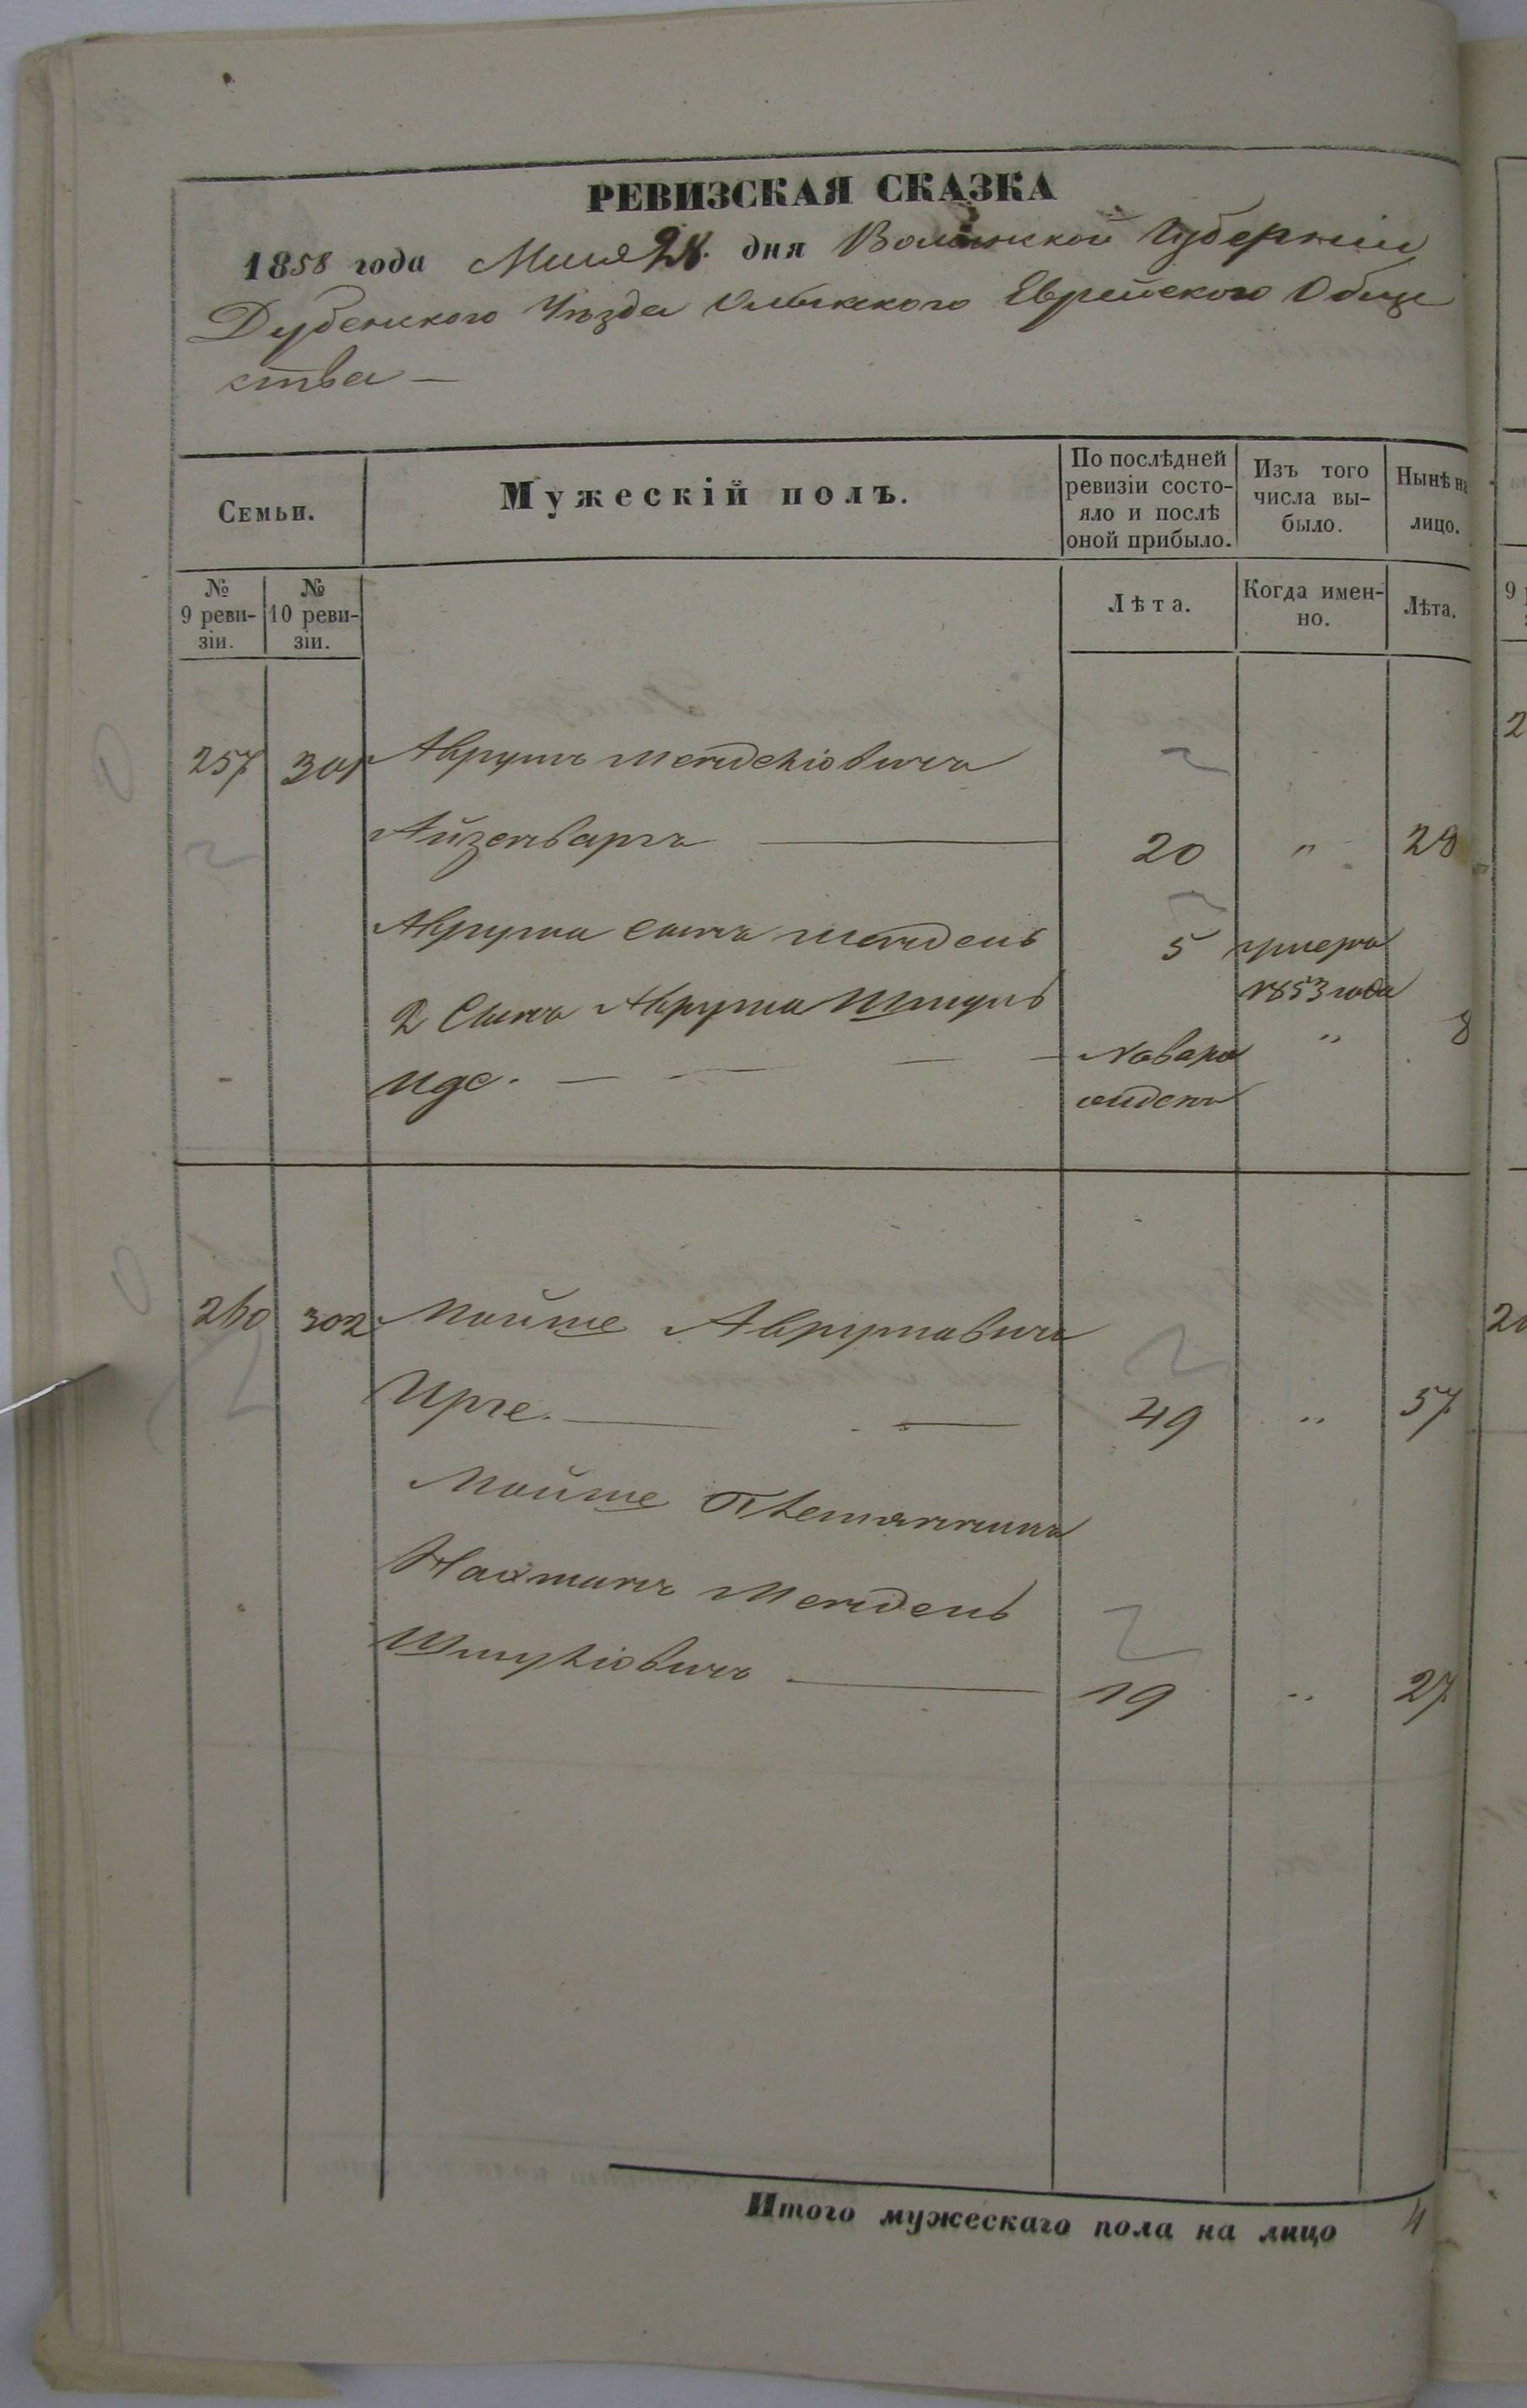 РЕВИЗСКАЯ СКАЗКА
1858 года Мая 28. дня Волынской Губерніи
Дубенского Уѣзда Олыкского Еврейского Обще
ства —
Семьи.
Мужескій полъ.
По послѣдней ревизіи состояло и послѣ оной прибыло.
Изъ того числа выбыло.
Нынѣ на лицо.
№ 9 ревизіи.
№ 10 ревизіи.
Лѣта.
Когда именно.
Лѣта.
257 301 Аврумъ Менделіовичъ
Айзенбаргъ 20 " 28
Аврума сынъ Мендель 5 умеръ
1853 года
2 Сынъ Аврума Шмуль
Иде. новоро " 8
жденъ
260 302 Мойше Аврумовичъ
Ирге. 49 " 57
Мойше Племянникъ
Нахманъ Мендель
Шмуліовичъ 19 " 27
Итого мужескаго пола на лицо 4